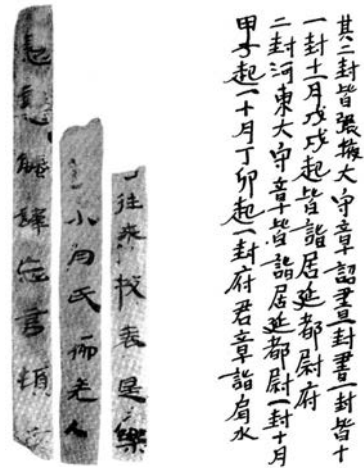 其二封皆張掖大守章詔書一封書一封皆十
一封十一月戊戌起皆詣居延都尉府
二封河東大守章皆詣居延都尉一封十月
甲子起一十月丁卯起一封府君章詣肩水
往來校表是樂
小月氏柳羌人